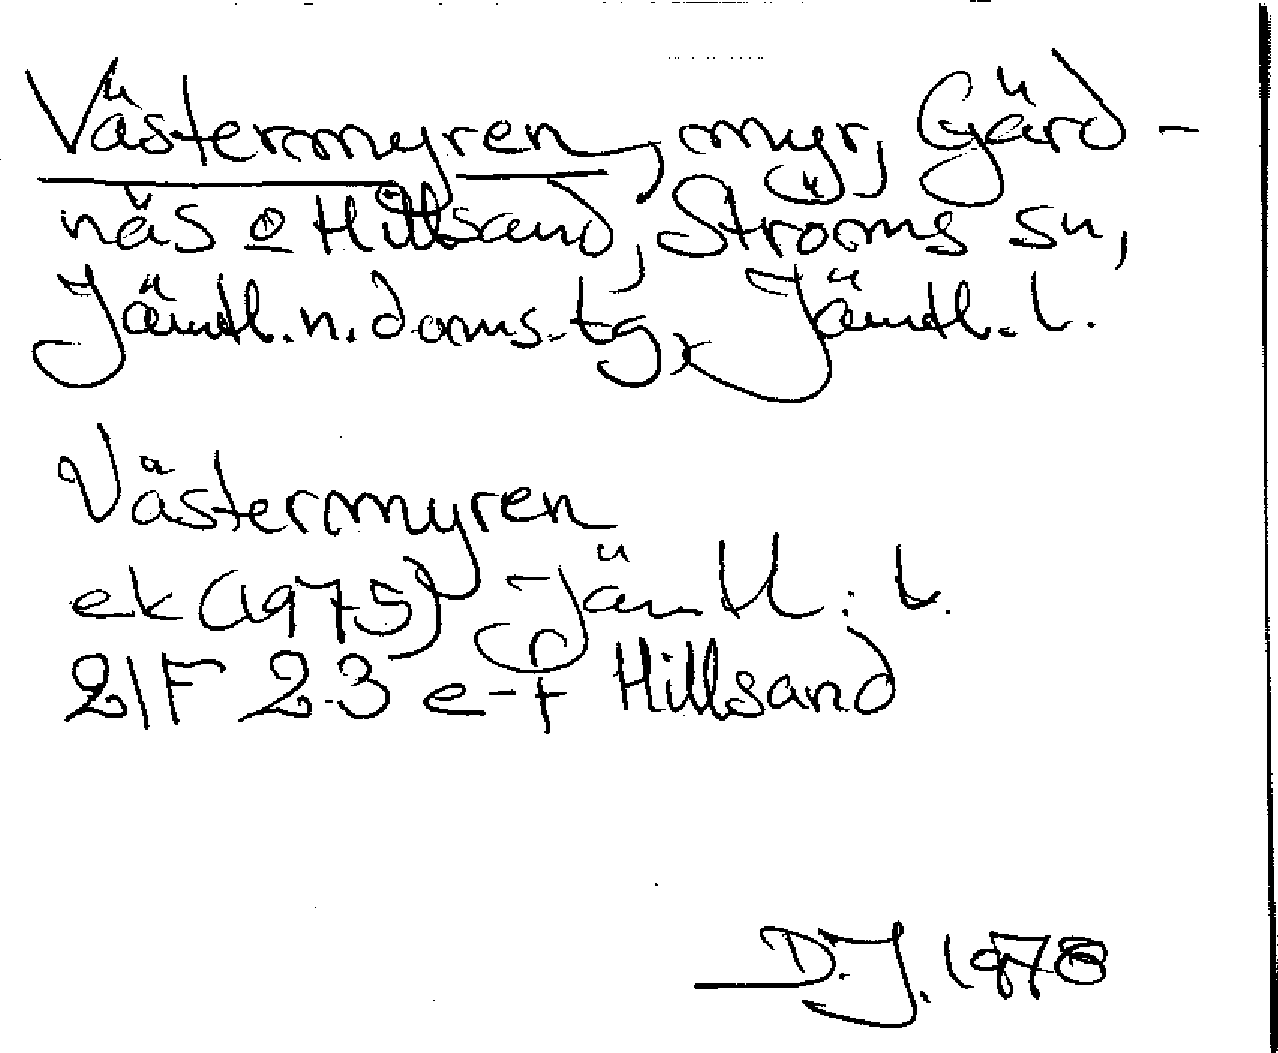 Västermyren, myr, Gärd-
näs o Hillsand, Ströms sn,
Jämtl. n. doms. tg, Jämtl. l.
Västermyren
ek (1975) Jämtl. l.
21F 2-3 e-f Hillsand
D.J. 1978